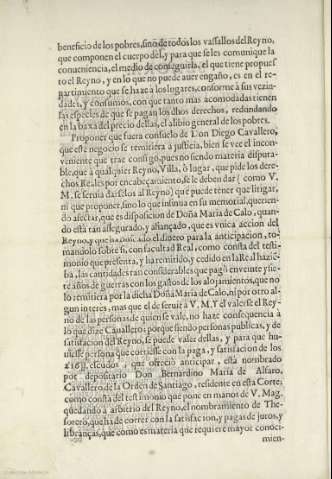 beneficio de los pobres, sino de todos los vassallos del Reyno,
que componen el cuerpo del, y para que se les comunique la
conueniencia, el medio de conseguirla, el que tiene propuesto
el Reyno, y en lo que no puede auer engaño, es en el re-
partimiento que se haze a los lugares, conforme a sus vezin-
dades, y consumos, con que tanto mas acomodadas tienen
las especies de que se pagan los dhos derechos, redundando
en la baxa del precio dellas, el aliuio general de los pobres.
Proponer que fuera consuelo de Don Diego Cauallero,
que este negocio se remitiera a justicia, bien se vee el incon-
veniente que trae consigo, pues no siendo materia disputa-
ble, que a qualquier Reyno, Villa, ò lugar, que pide los dere-
chos Reales por encabeçamiento, se le deben dar ( como V.
M. se seruia darselos al Reyno) què puede tener que litigar,
ni que proponer, sino lo que insinua en su memorial, querien-
do afectar, que es disposicion de Doña Maria de Calo, quan-
do està tan assegurado, y afiançado, que es vnica accion del
Reyno, y que ha buscado el dinero para la anticipacion, to-
mandolo sobre si, con facultad Real, como consta del testi-
monio que presenta, y ha remitido, y cedido en la Real hazie-
da, las cantidades tan considerables que pagò en veinte y sie-
te años de guerras con los gastos de los alojamientos, que no
lo remitiera por la dicha Doña Maria de Calo, ni por otro al-
gun interes, mas que el de seruir a V. M. Y el valerse el Rey-
no de las personas de quien se vale, no haze consequencia à
lo que dize Cauallero; porque siendo personas publicas, y de
satisfacion del Reyno, se puede valer dellas, y para que hu-
uiesse persona que corriesse con la paga, y satisfacion de los
escudos, que ofreciò anticipar, està nombrado
por depositario Don Bernardino Maria de Alfaro,
Cavallero de la Orden de Santiago, residente en esta Corte,
como consta del testimonio que pone en manos de V. Mag.
quedando a arbitrio del Reyno, el nombramiento de The-
sorero, que ha de correr con la satisfacion, y pagas de juros, y
libranças, que como es materia que requiere mayor conoci-
mien-